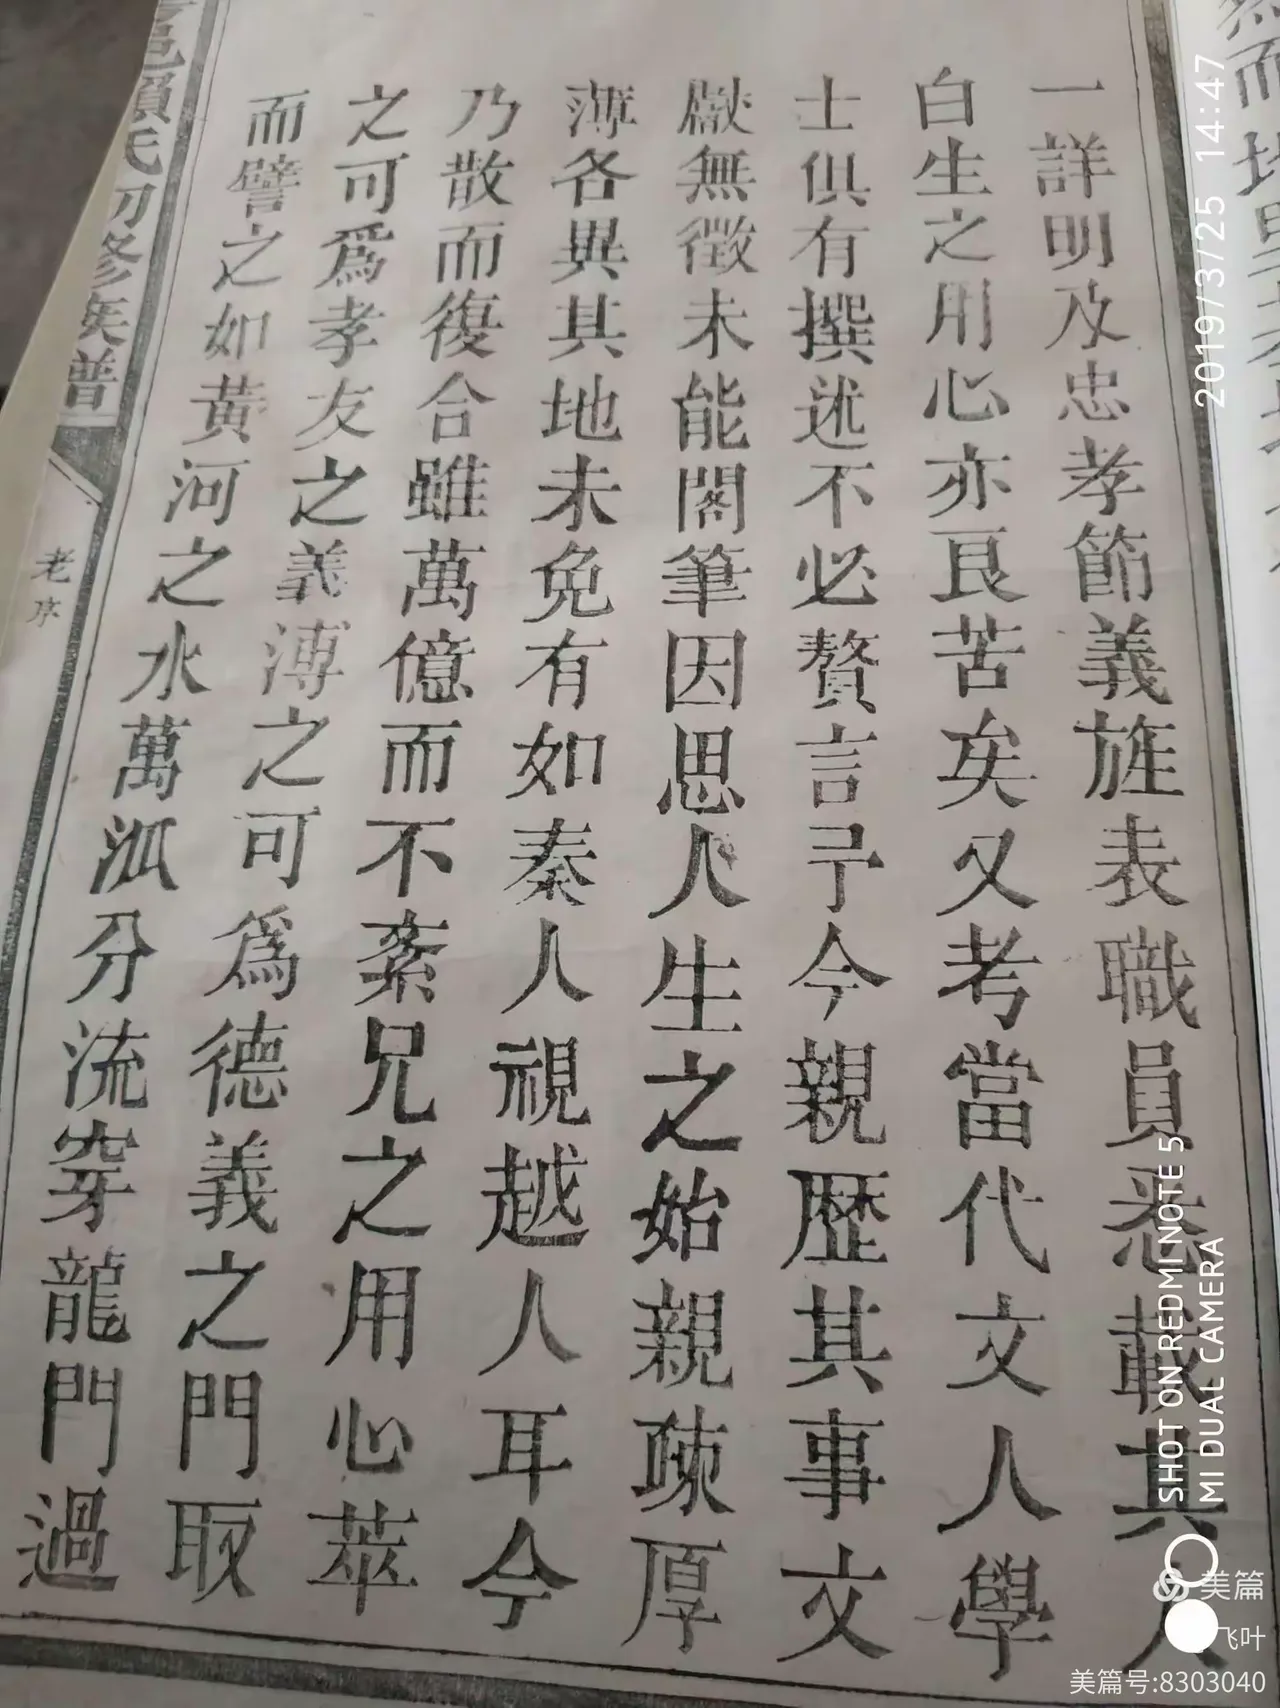 一詳明及忠孝節義旌表職員悉載其人
白生之用心亦艮苦矣又考當代文人學
士俱有撰述不必贅言予今親歷其事文
獻無徵未能閣筆因思人生之始親疎厚
薄各異其地未免有如秦人視越人耳今
乃散而復合雖萬億而不紊兄之用心萃
之可為孝友之義溥之可為德義之門取
而譬之如黃河之水萬泒分流穿龍門過
邑賴氏初修族譜
老序
2019/3/25 14:47
SHOT ON REDMI NOTE 5
MI DUAL CAMERA
美篇
飞叶
美篇号:8303040